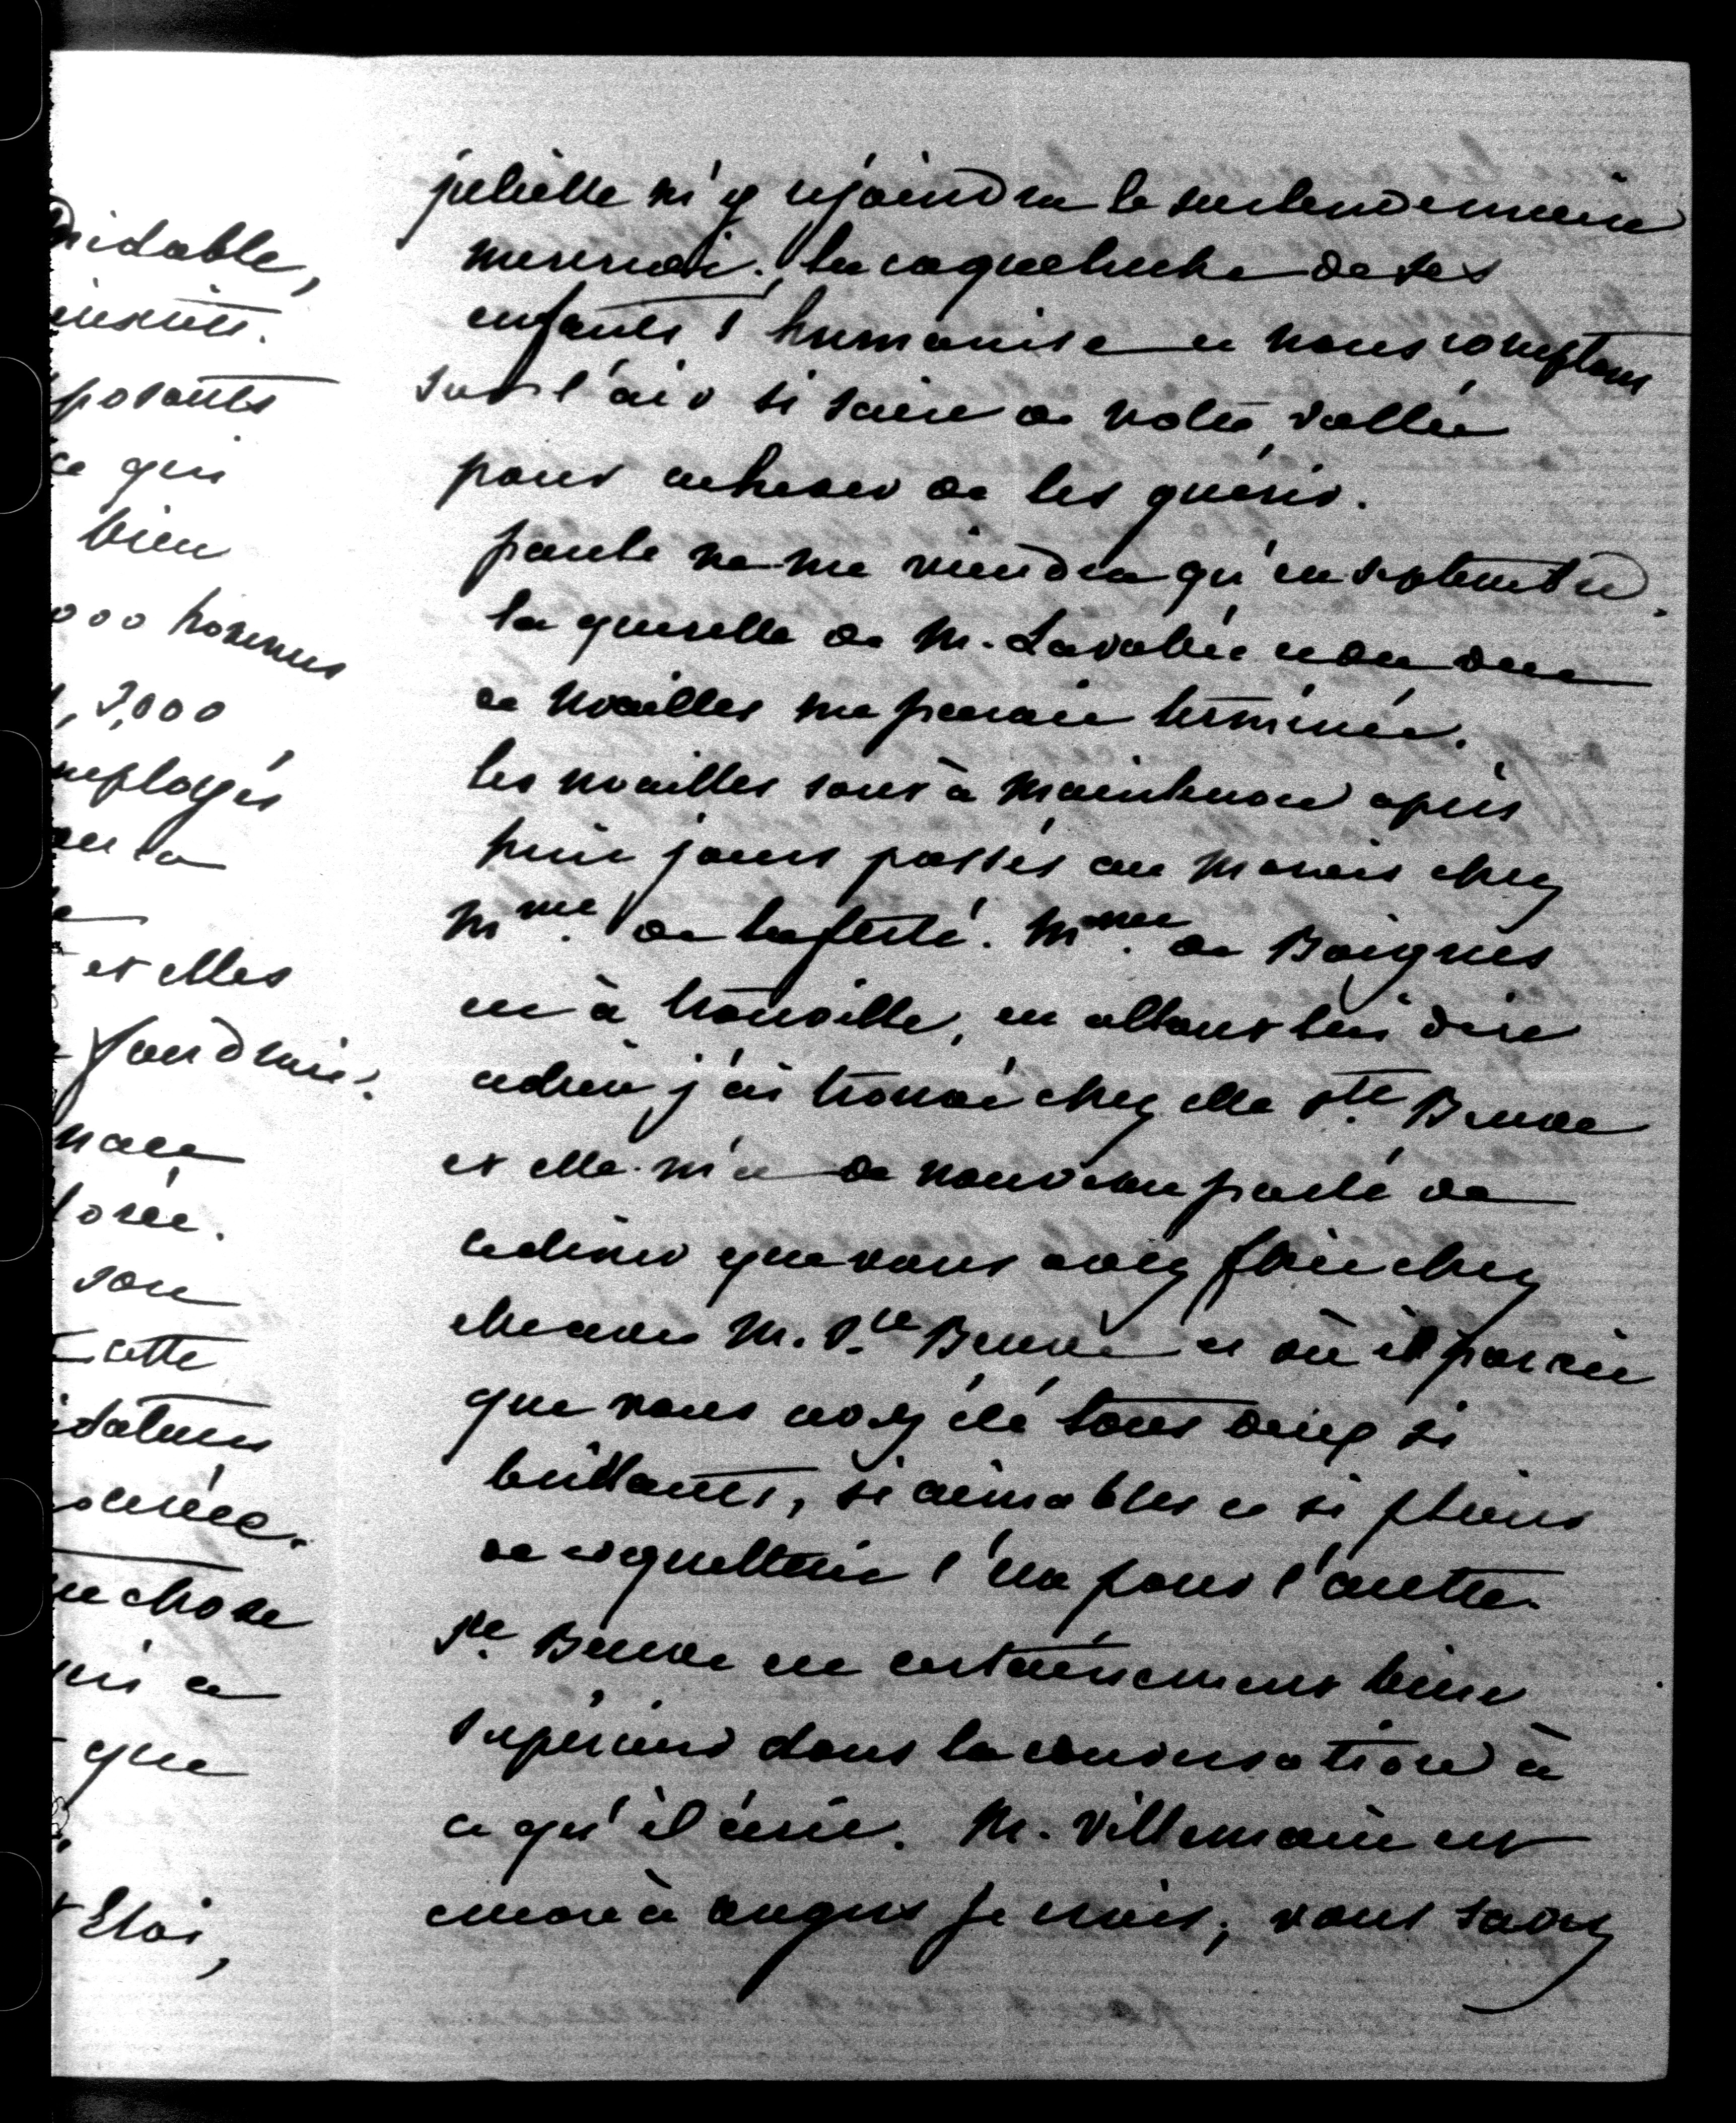 nidable,
posants
ce qui
bien
000 hommes
2,000
mployés
et elles
faudrait.
nace
lorée.
son
cette
idatures
ournée.
ue chose
que
Eloi,
juliette m'y rejoindra le surlendemain
mercredi. la coqueluche de ses
enfants s'humanise et nous comptons
sur l'air si sain de notre vallée
pour achever de les guérir.
paule ne me viendra qu'en septembre.
la querelle de M. Lavallée et du duc
de noailles me parait terminée.
les noailles sont à Maintenon après
huit jours passés au Marais chez
Mme. de la ferté. Mme. de Boignes
est à trouville, en allant lui dire
adieu j'ai trouvé chez elle Ste. Beuve
et elle m'a de nouveau parlé de
ce diner que vous avez fait chez
M. Ste. Beuve et où il parait
que vous avez été tous deux si
brillants, si aimables et si pleins
de coquetterie l'un pour l'autre.
Ste. Beuve est certainement bien
supérieur dans la conversation à
ce qu'il écrit. M. Villemain est
encore à angers je crois, vous savez